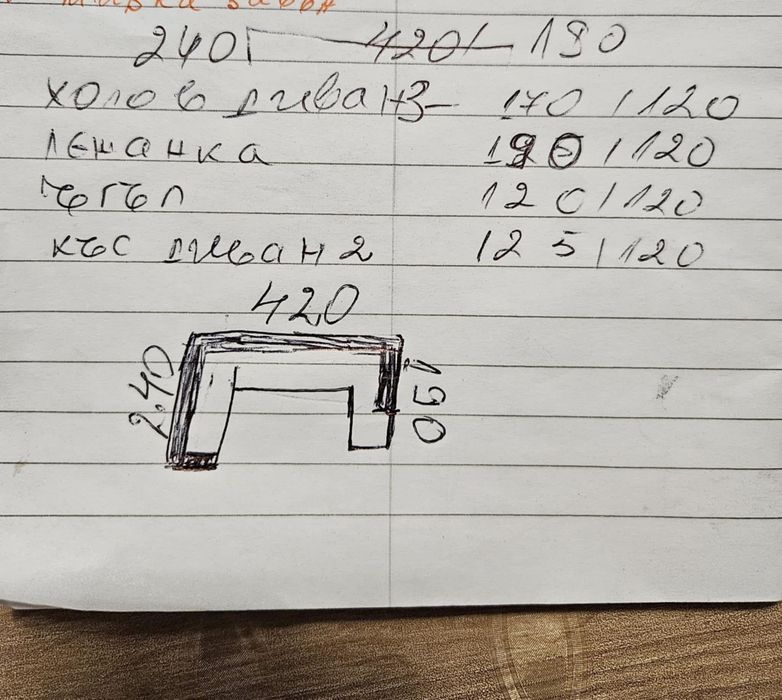 240 420 190
холов диван 3 - 170 / 120
лежанка 190 / 120
ъгъл 120 / 120
къс диван 2 125 / 120
420
2.40
150